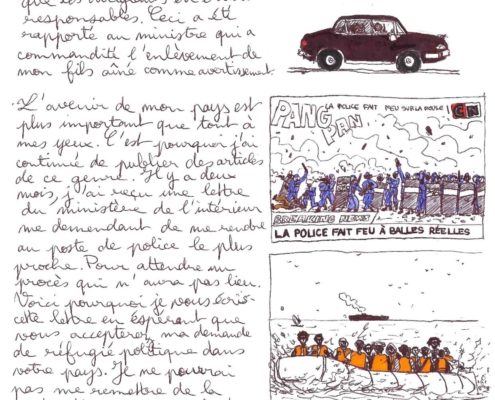 que les dirigeants en étaient
responsables. Ceci a été
rapporté au ministre qui a
commandité l'enlèvement de
mon fils aîné comme avertissement.
L'avenir de mon pays est
plus important que tout à
mes yeux. C'est pourquoi j'ai
continué de publier des articles
de ce genre. Il y a deux
mois, j'ai reçu une lettre
du ministère de l'intérieur
me demandant de me rendre
au poste de police le plus
proche. Pour attendre un
procès qui n'aura pas lieu.
Voici pourquoi je vous écris
cette lettre en espérant que
vous accepterez ma demande
de réfugié politique dans
votre pays. Je ne pourrai
pas me remettre de la
PANG
PAN
LA POLICE FAIT FEU SUR LA FOULE !
CN
BREAKING NEWS
LA POLICE FAIT FEU À BALLES RÉELLES